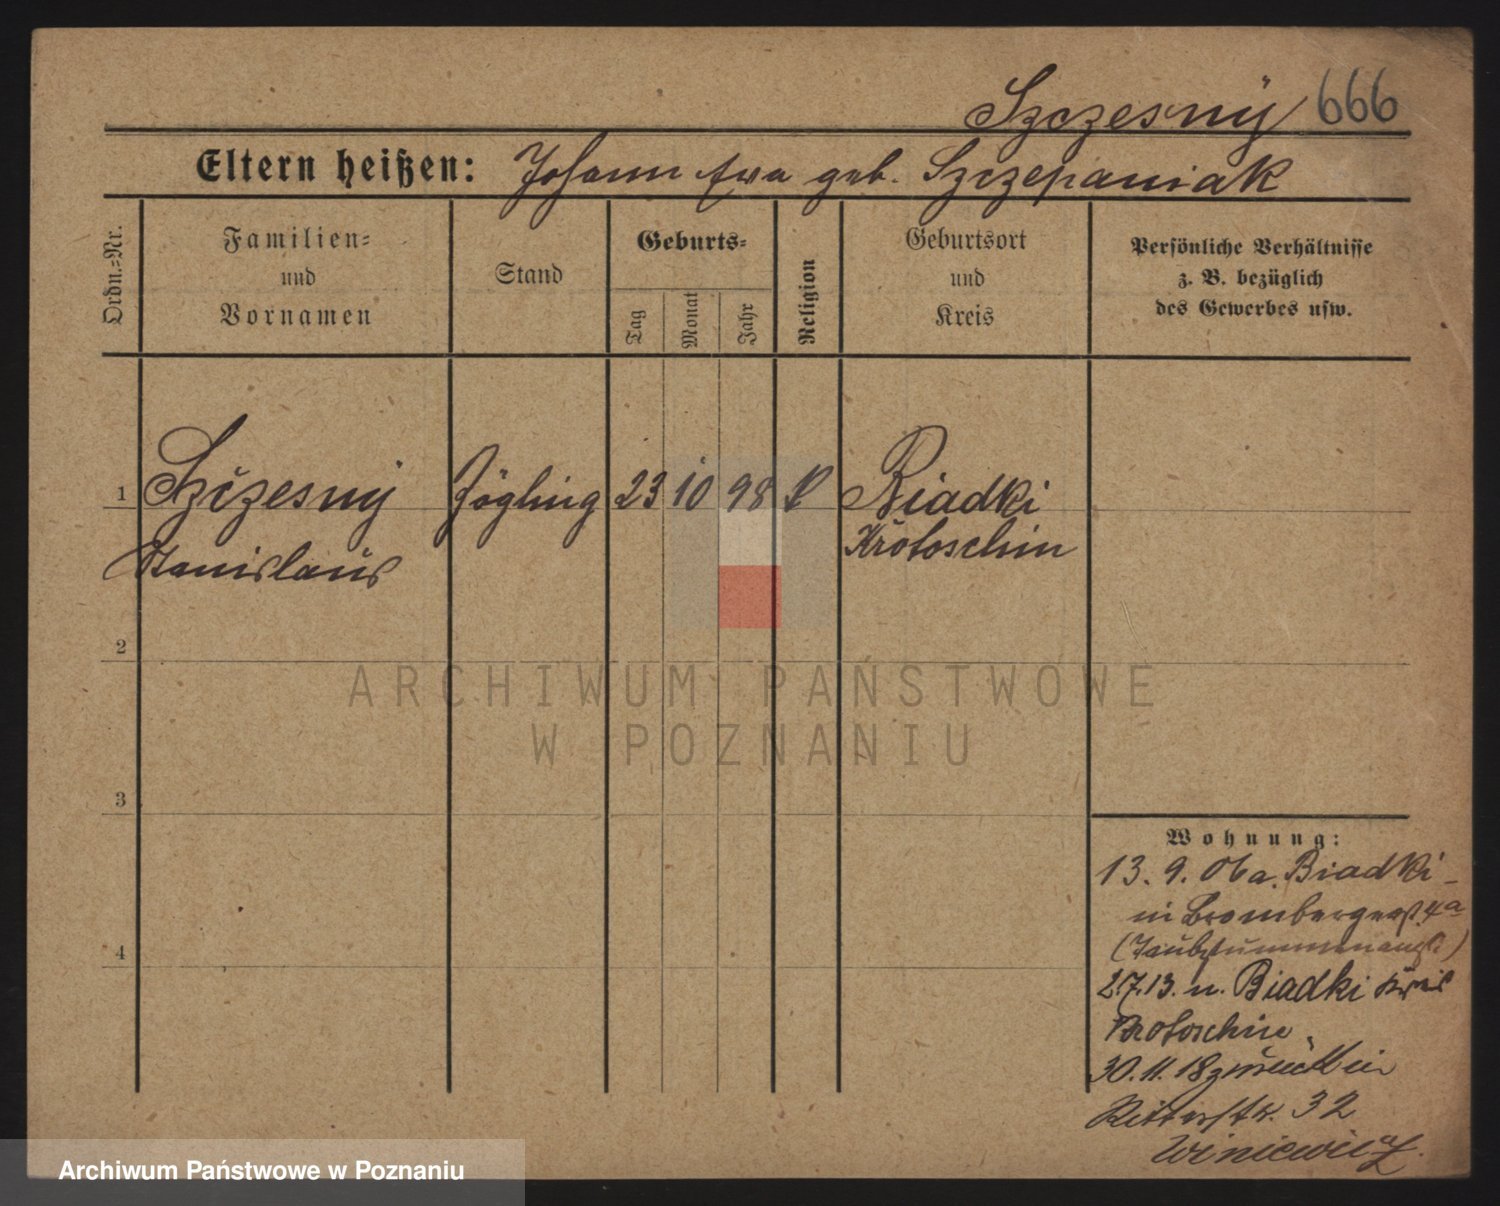 Szczesny 666
Eltern heißen: Johann Eva geb. Szczepaniak
Ordn.=Nr.
Familien=
und
Vornamen
Stand
Geburts=
Tag
Monat
Jahr
Religion
Geburtsort
und
Kreis
Persönliche Verhältnisse
z. B. bezüglich
des Gewerbes usw.
1 Szczesny Zögling 23 10 98 k Biadki
Stanislaus Krotoschin
2
3
4
ARCHIWUM PAŃSTWOWE
W POZNANIU
Wohnung:
13. 9. 06 a. Biadki -
in Brombergerst 4a
(Taubstummenanst.)
2.7.13. n. Biadki Kreis
Krotoschin.
30. 11. 18 zurück in
Ritterstr. 32
Winiewicz
Archiwum Państwowe w Poznaniu